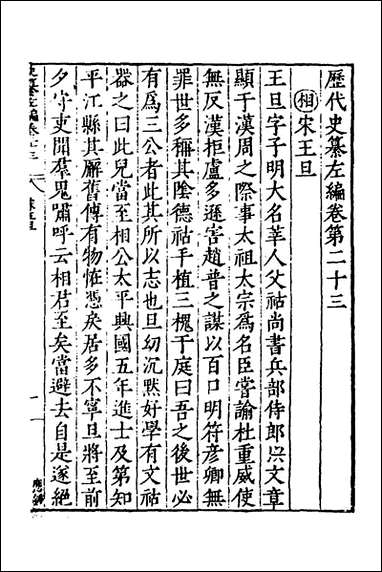 歷代史纂左編卷第二十三
相宋王旦
王旦字子明大名莘人父祜尚書兵部侍郎㠯文章
顯于漢周之際事太祖太宗爲名臣嘗諭杜重威使
無反漢拒盧多遜害趙普之謀以百口明符彥卿無
罪世多稱其陰德祜手植三槐于庭曰吾之後世必
有爲三公者此其所以志也旦幼沉黙好學有文祜
器之曰此兒當至相公太平興國五年進士及第知
平江縣其廨舊傳有物恠憑戾居多不寧旦將至前
夕守吏聞羣鬼嘯呼云相君至矣當避去自是遂絕